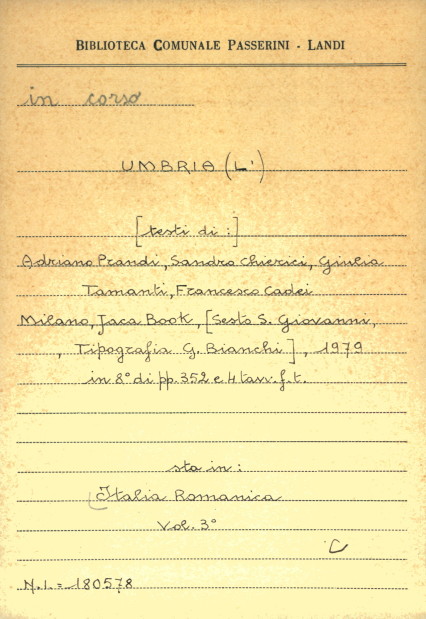 BIBLIOTECA COMUNALE PASSERINI - LANDI
in corso
UMBRIA (L')
[testi di:]
Adriano Prandi, Sandro Chierici, Giulia
Tamanti, Francesco Cadei
Milano, Jaca Book, [Sesto S. Giovanni,
, Tipografia G. Bianchi], 1979
in 8° di pp. 352 e 4 tavv. f. t.
sta in:
Italia Romanica
Vol. 3°
C
N.I. = 180578